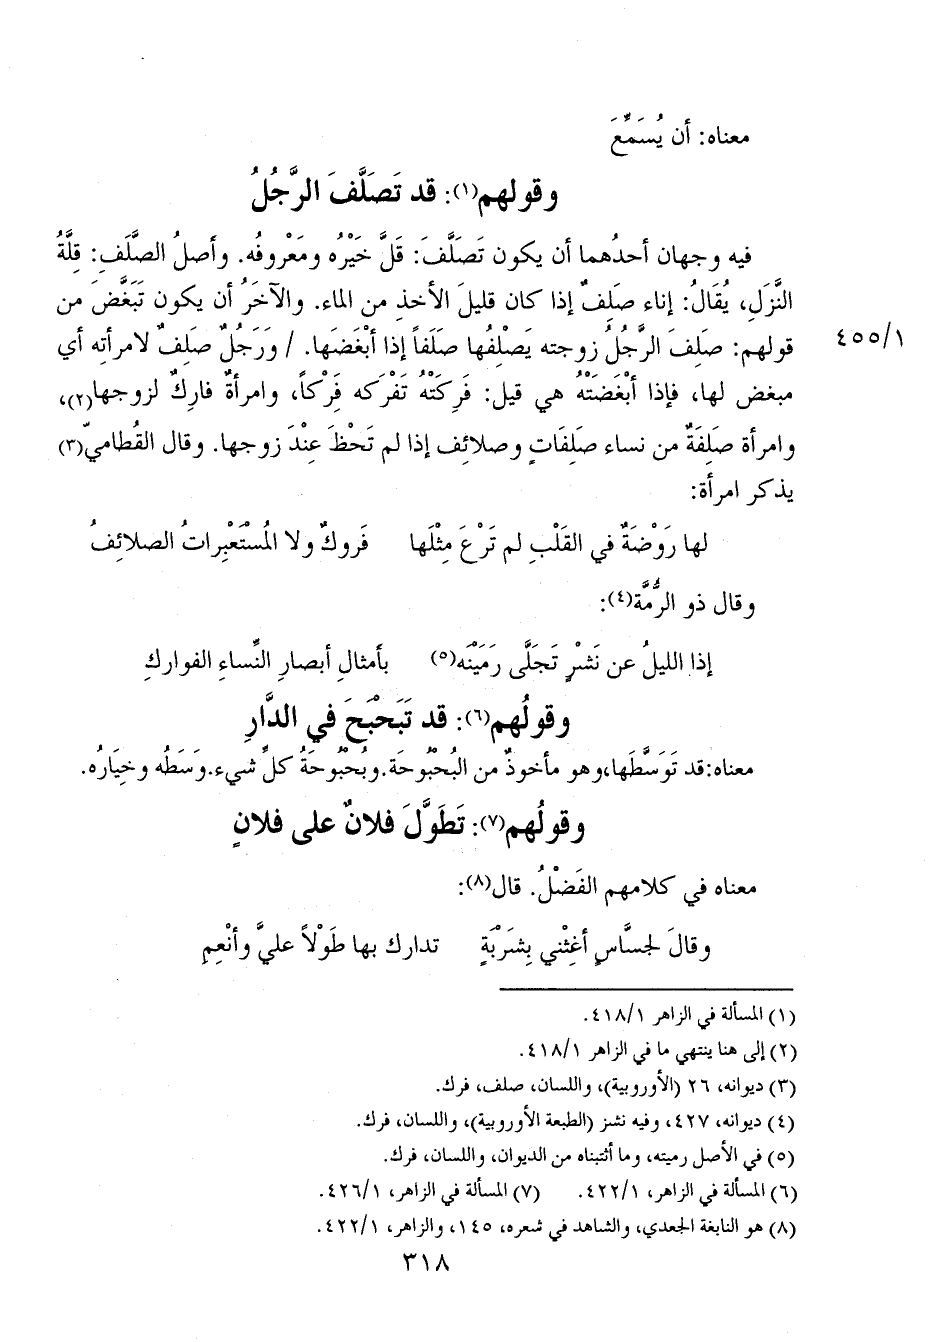 معناه: أن يُسَمِّعَ
وقولهم(١): قد تَصَلَّفَ الرَّجُلُ
فيه وجهان أحدُهما أن يكون تَصَلَّفَ: قَلَّ خَيْرُه ومَعْروفُه. وأصلُ الصَّلَفِ: قِلَّةُ
النَّزَلِ، يُقَالُ: إناء صَلِفٌ إذا كان قليلَ الأخذِ من الماء. والآخَرُ أن يكون تَبَغَّضَ من
قولهم: صَلِفَ الرَّجُلُ زوجته يَصْلِفُها صَلَفاً إذا أبْغَضَها. / وَرَجُلٌ صَلِفٌ لامرأتِه أي
٤٥٥/١
مبغض لها، فإذا أبْغَضَتْهُ هي قيل: فَرِكَتْهُ تَفْرَكه فِرْكاً، وامرأةٌ فارِكٌ لزوجها(٢)،
وامرأة صَلِفَةٌ من نساء صَلِفَاتٍ وصلائِف إذا لم تَحْظَ عِنْدَ زوجها. وقال القُطاميّ(٣)
يذكر امرأة:
لها رَوْضَةٌ في القَلْبِ لم تَرْعَ مِثْلَها فَروكٌ ولا المُسْتَعْبِراتُ الصلائِفُ
وقال ذو الرُّمَّة(٤):
إذا الليلُ عن نَشْزٍ تَجَلَّى رَمَيْنَه(٥) بأمثالِ أبصارِ النِّساءِ الفوارِكِ
وقولُهم(٦): قد تَبَحْبَحَ في الدَّارِ
معناه: قد تَوَسَّطَها، وهو مأخوذٌ من البُحْبُوحَة. وبُحْبُوحَةُ كلِّ شيء. وَسَطُه وخِيَارُه.
وقولُهم(٧): تَطَوَّلَ فلانٌ على فلانٍ
معناه في كلامهم الفَضْلُ. قال(٨):
وقالَ لجسَّاسٍ أغِثْني بِشَرْبَةٍ تدارك بها طَوْلاً عليَّ وأنْعِمِ
(١) المسألة في الزاهر ٤١٨/١.
(٢) إلى هنا ينتهي ما في الزاهر ٤١٨/١.
(٣) ديوانه، ٢٦ (الأوروبية)، واللسان، صلف، فرك.
(٤) ديوانه، ٤٢٧، وفيه نشز (الطبعة الأوروبية)، واللسان، فرك.
(٥) في الأصل رميته، وما أثبتناه من الديوان، واللسان، فرك.
(٦) المسألة في الزاهر، ٤٢٢/١. (٧) المسألة في الزاهر، ٤٢٦/١.
(٨) هو النابغة الجعدي، والشاهد في شعره، ١٤٥، والزاهر، ٤٢٢/١.
٣١٨